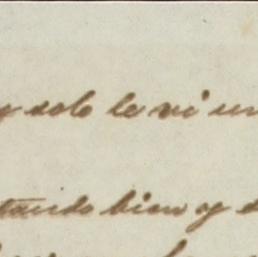 y solo le vi un
tando bien y